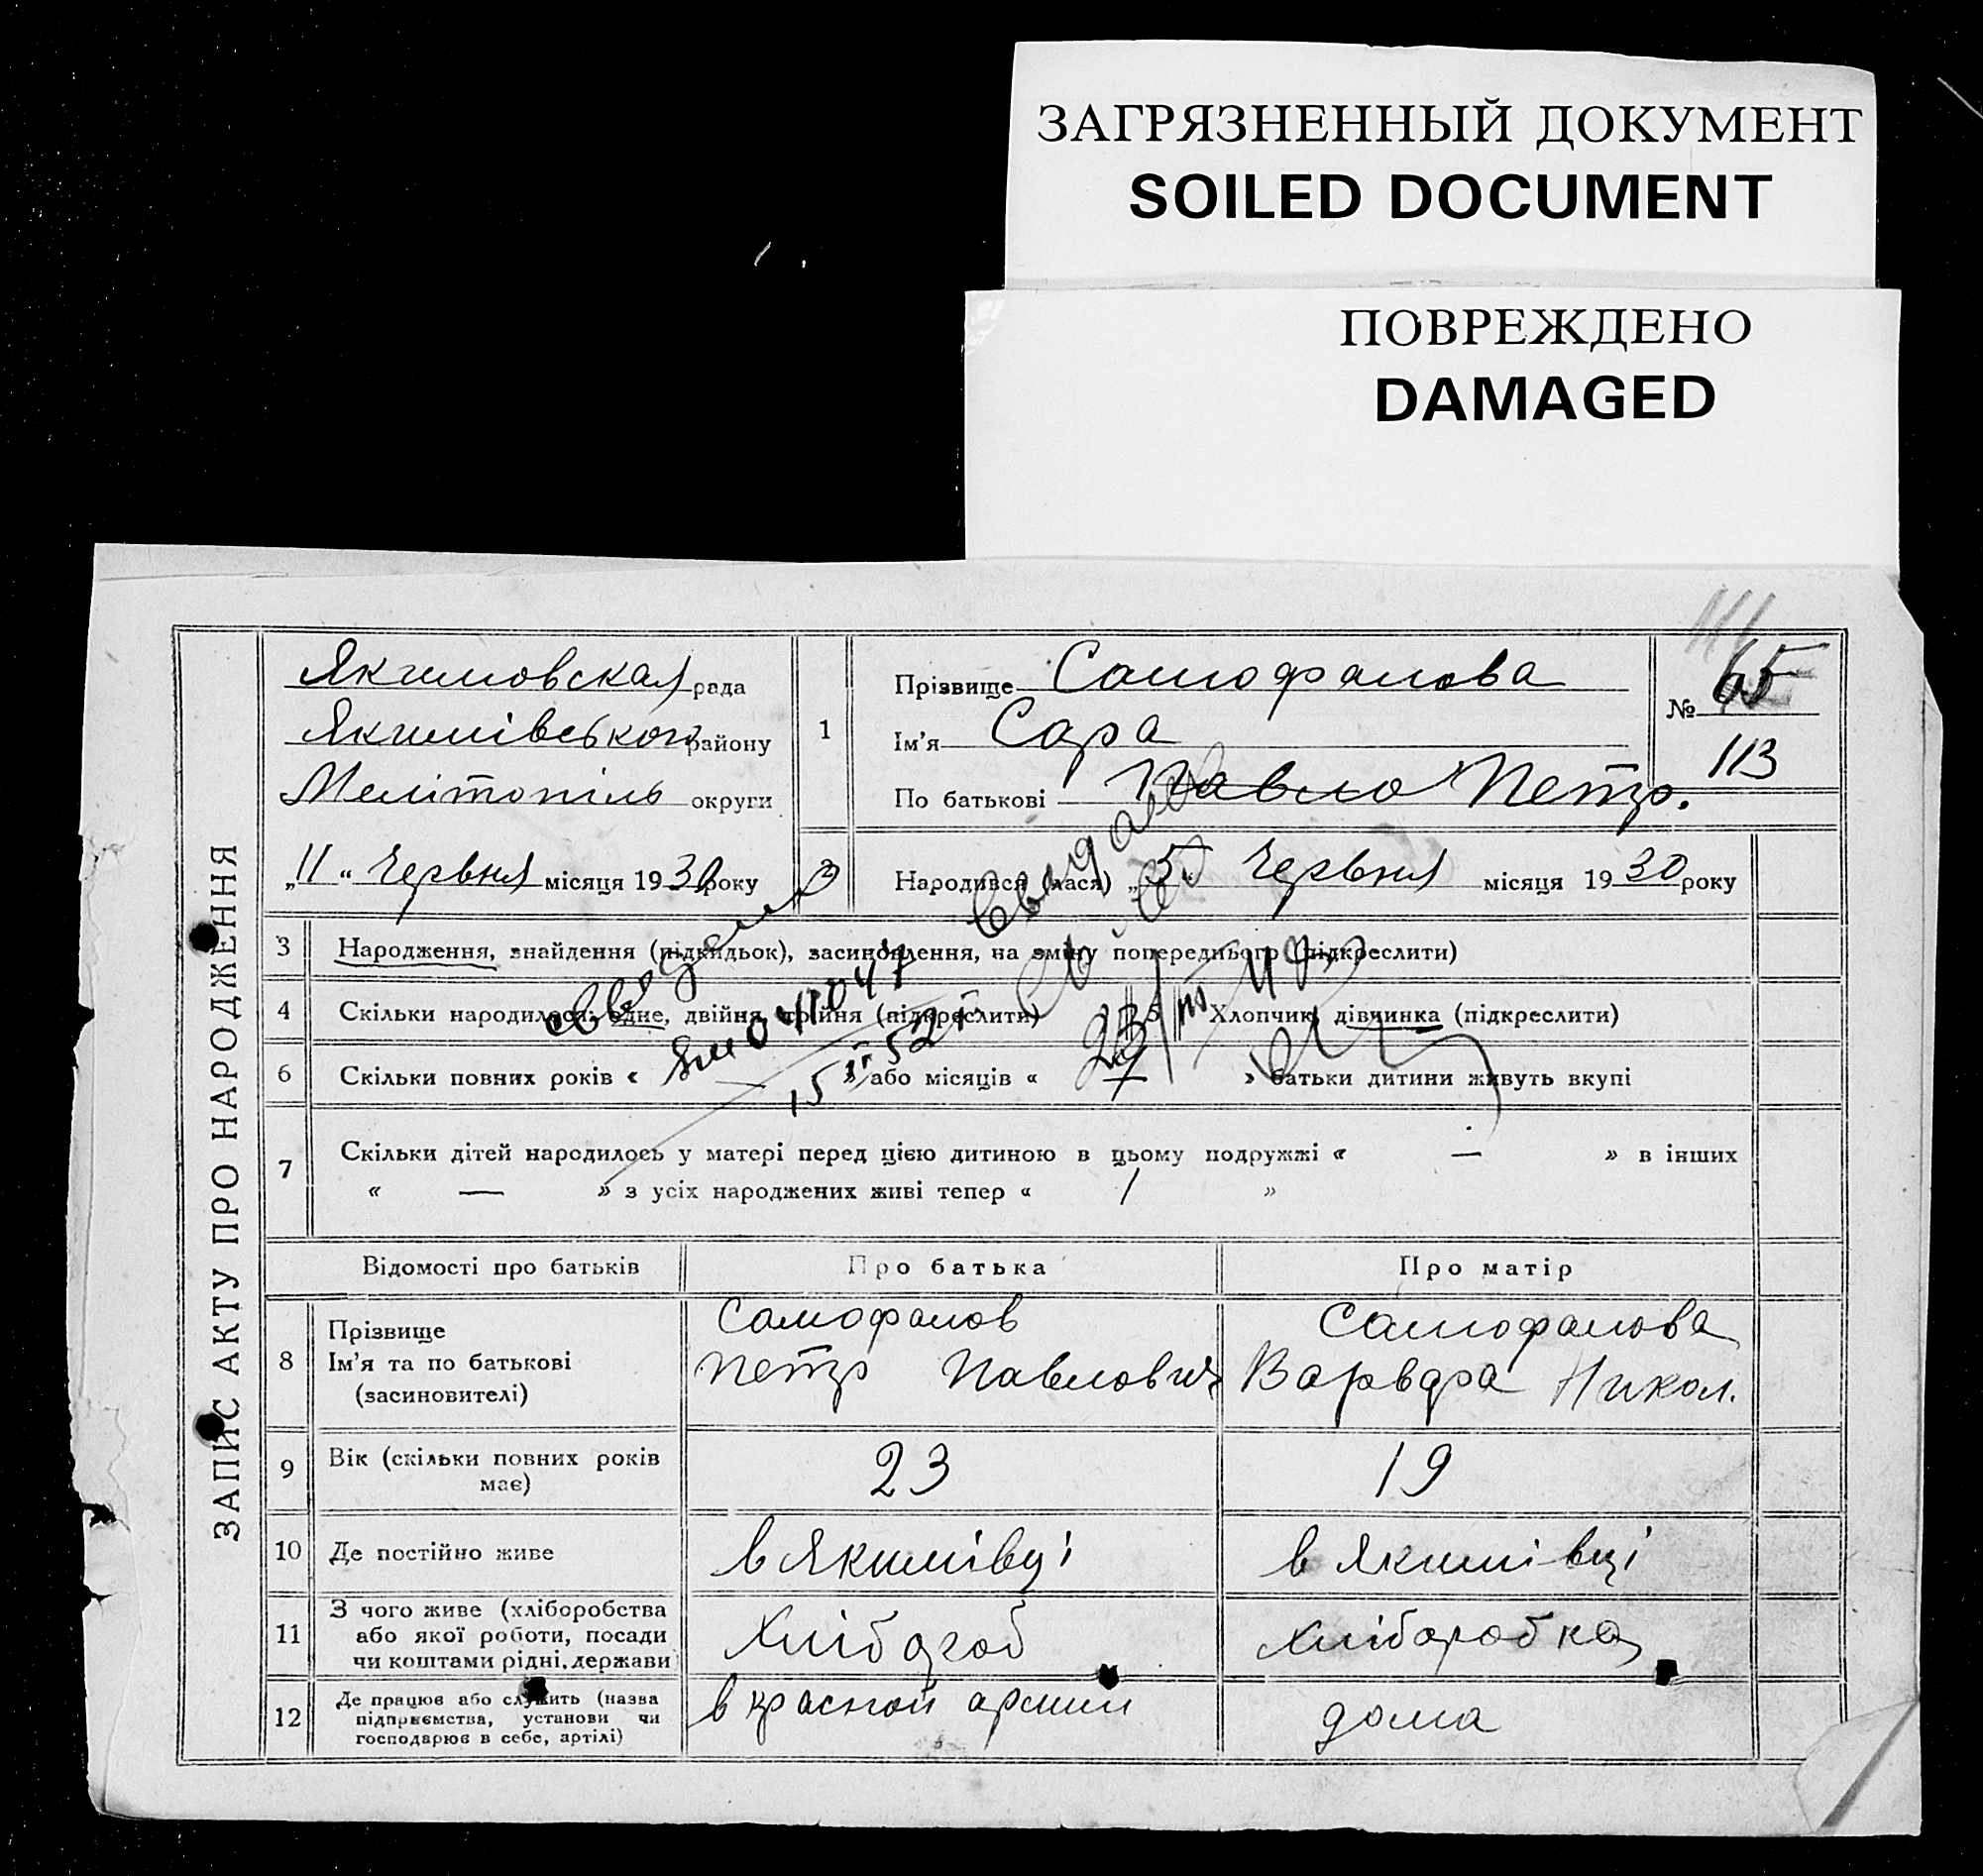 ЗАГРЯЗНЕННЫЙ ДОКУМЕНТ
SOILED DOCUMENT
ПОВРЕЖДЕНО
DAMAGED
ЗАПИС АКТУ ПРО НАРОДЖЕННЯ
Якимовская рада
Якимівського району
Мелітопіль округи
„11“ Червня місяця 1930 року
1
Прізвище Самофалова
Ім'я Сара
По батькові Павло Петр.
№ 65
113
2
Народився (лася) „5“ Червня місяця 1930 року
3 Народження, знайдення (підкидьок), засиновлення, на зміну попереднього (підкреслити)
4 Скільки народилося: одне, двійня, трійня (підкреслити) 5 Хлопчик, дівчинка (підкреслити)
6 Скільки повних років « — » або місяців « » батьки дитини живуть вкупі
7 Скільки дітей народилось у матері перед цією дитиною в цьому подружжі « — » в інших
« — » з усіх народжених живі тепер « 1 »
Відомості про батьків Про батька Про матір
8 Прізвище
Ім'я та по батькові
(засиновителі)
Самофалов
Петр Павлович
Самофалова
Варвара Никол.
9 Вік (скільки повних років
має)
23
19
10 Де постійно живе
в Якимівці
в Якимівці
11 З чого живе (хліборобства
або якої роботи, посади
чи коштами рідні, держави
Хлібороб
хліборобка
12 Де працює або служить (назва
підприємства, установи чи
господарює в себе, артілі)
в красной армии
дома